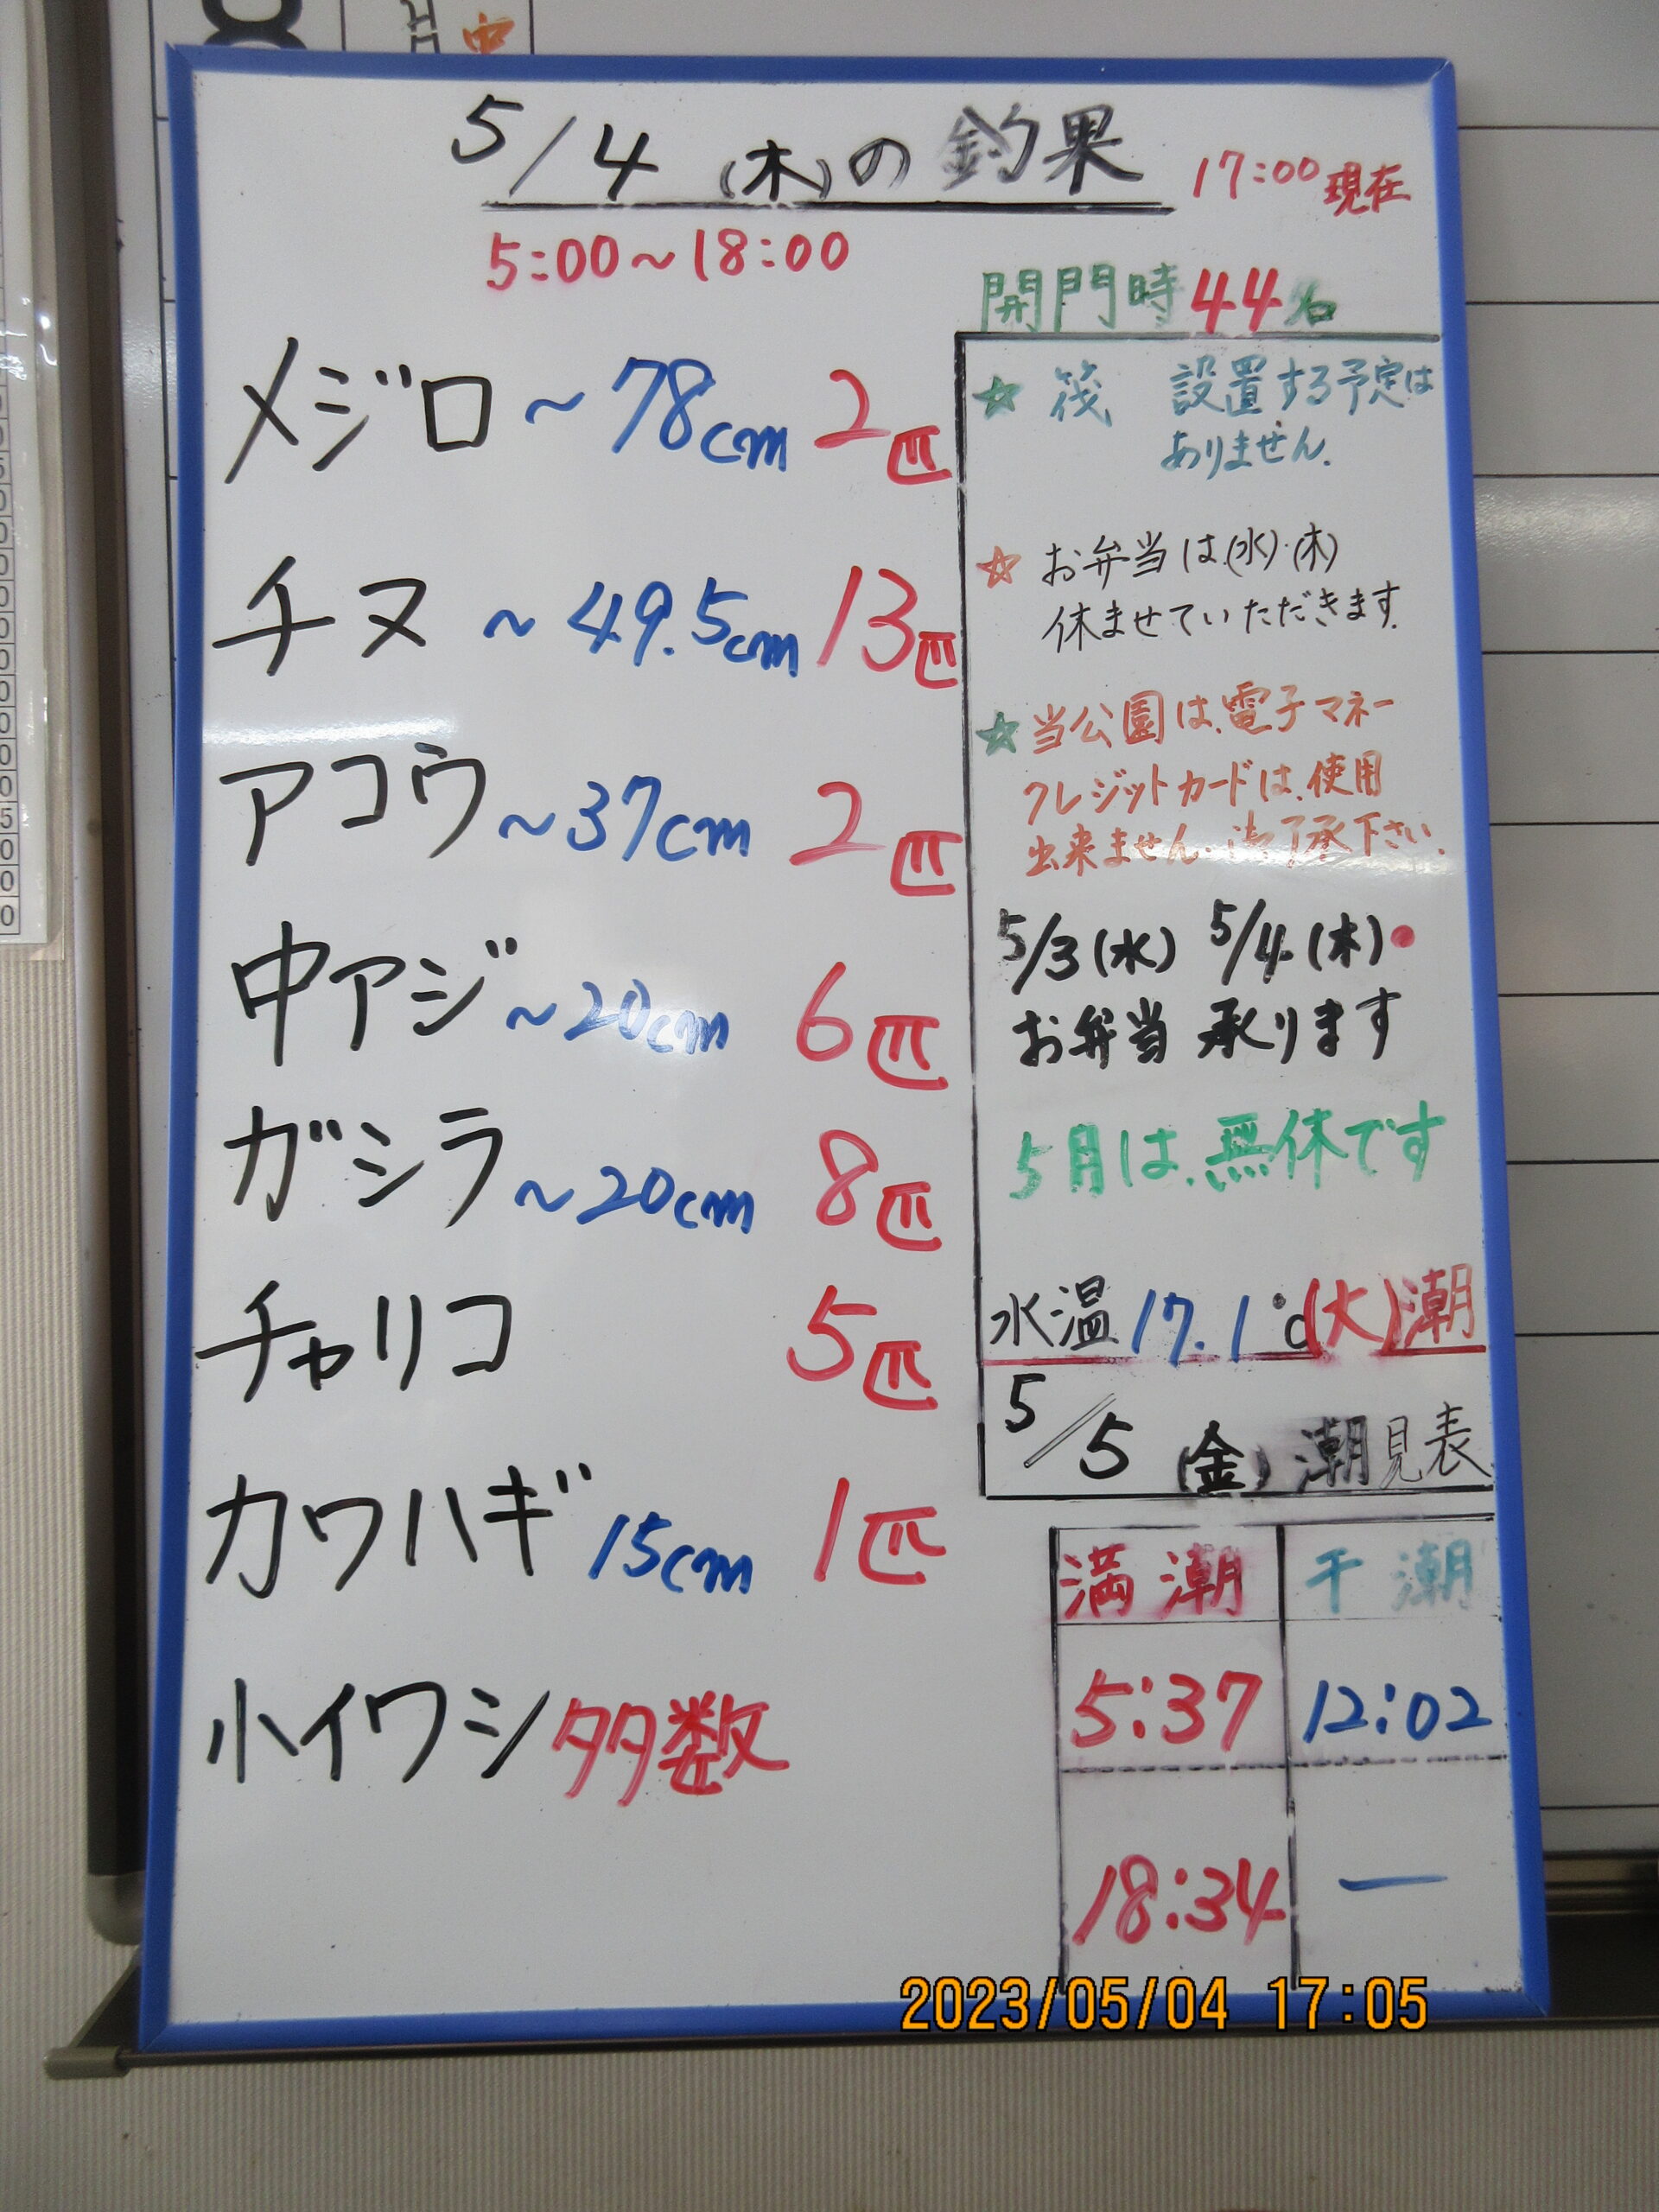 中
5/4 (木)の釣果
17:00現在
5:00~18:00
開門時44名
メジロ~78cm 2匹
チヌ ~49.5cm 13匹
アコウ~37cm 2匹
中アジ~20cm 6匹
ガシラ~20cm 8匹
チャリコ 5匹
カワハギ 15cm 1匹
小イワシ多数
☆ 筏 設置する予定は
ありません.
☆ お弁当は(水)・(木)
休ませていただきます.
☆当公園は、電子マネー
クレジットカードは、使用
出来ません.御了承下さい.
5/3(水) 5/4(木)
お弁当 承ります
5月は、無休です
水温17.1℃(大)潮
5/5 (金) 潮見表
満潮 干潮
5:37 12:02
18:34 ―
2023/05/04 17:05